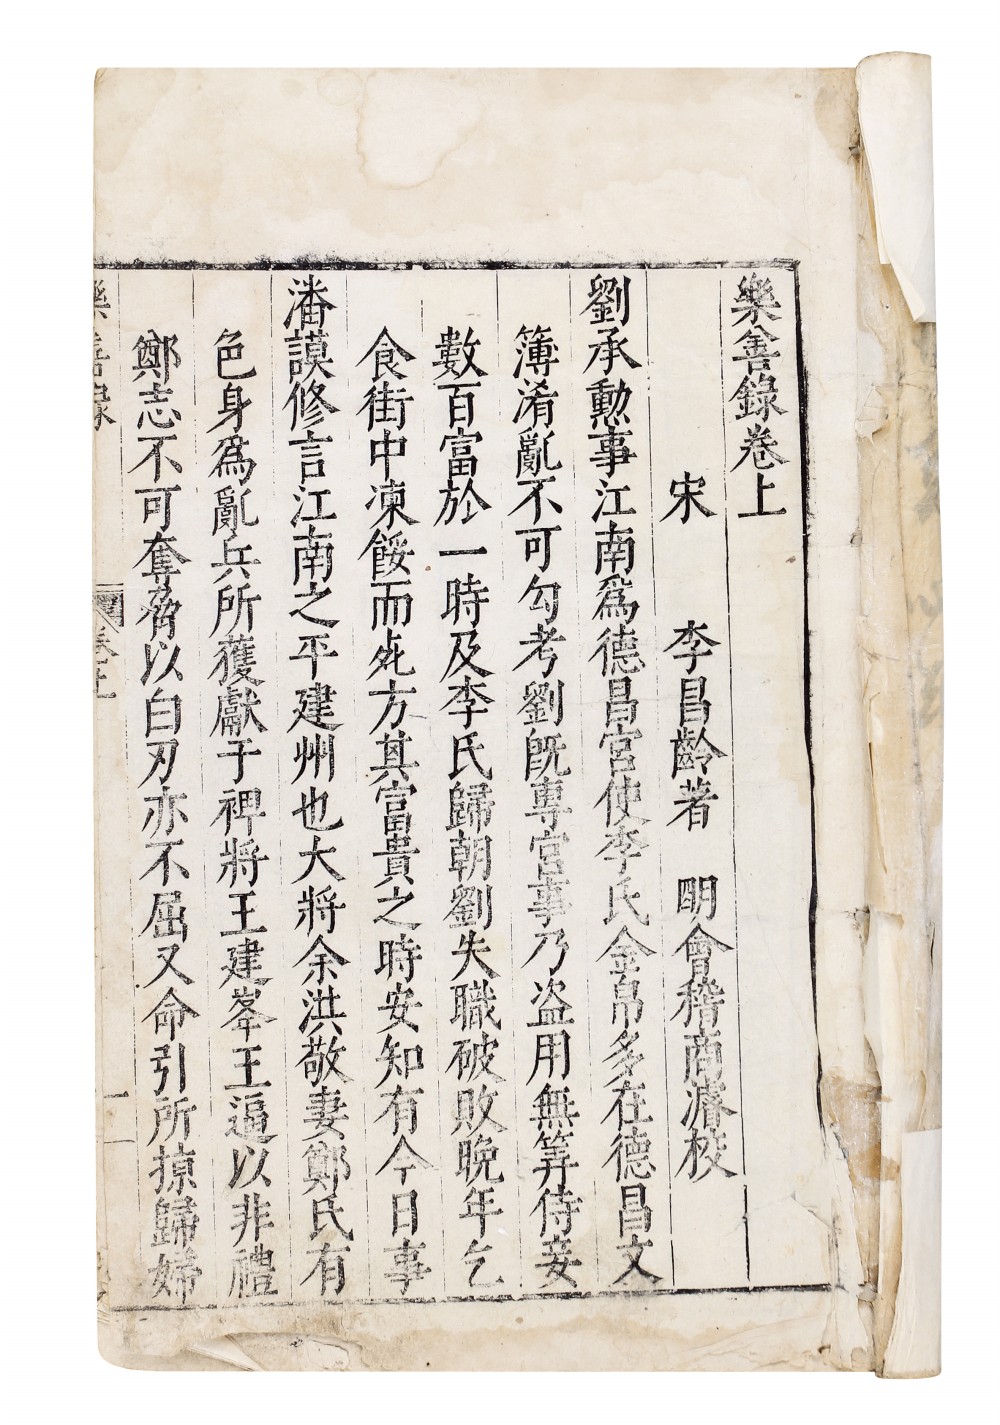 樂善錄卷上
宋 李昌齡著 明會稽商濬校
劉承勳事江南爲德昌宮使李氏金帛多在德昌文
簿淆亂不可勾考劉旣專宮事乃盜用無筭侍妾
數百富於一時及李氏歸朝劉失職破敗晚年乞
食街中凍餒而死方其富貴之時安知有今日事
潘謨修言江南之平建州也大將余洪敬妻鄭氏有
色身爲亂兵所獲獻于裨將王建峯王逼以非禮
鄭志不可奪脅以白刃亦不屈又命引所掠歸婦
樂善錄 卷上 一